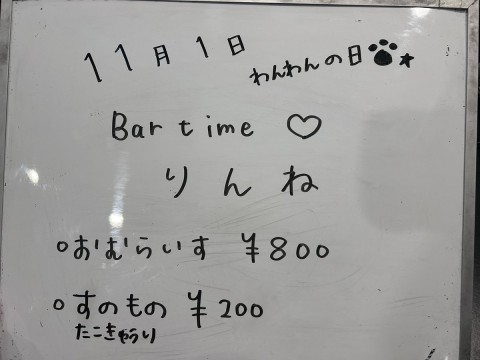 11月1日
わんわんの日
Bar time ♡
りんね
○おむらいす ¥800
○すのもの ¥200
たこきゅうり